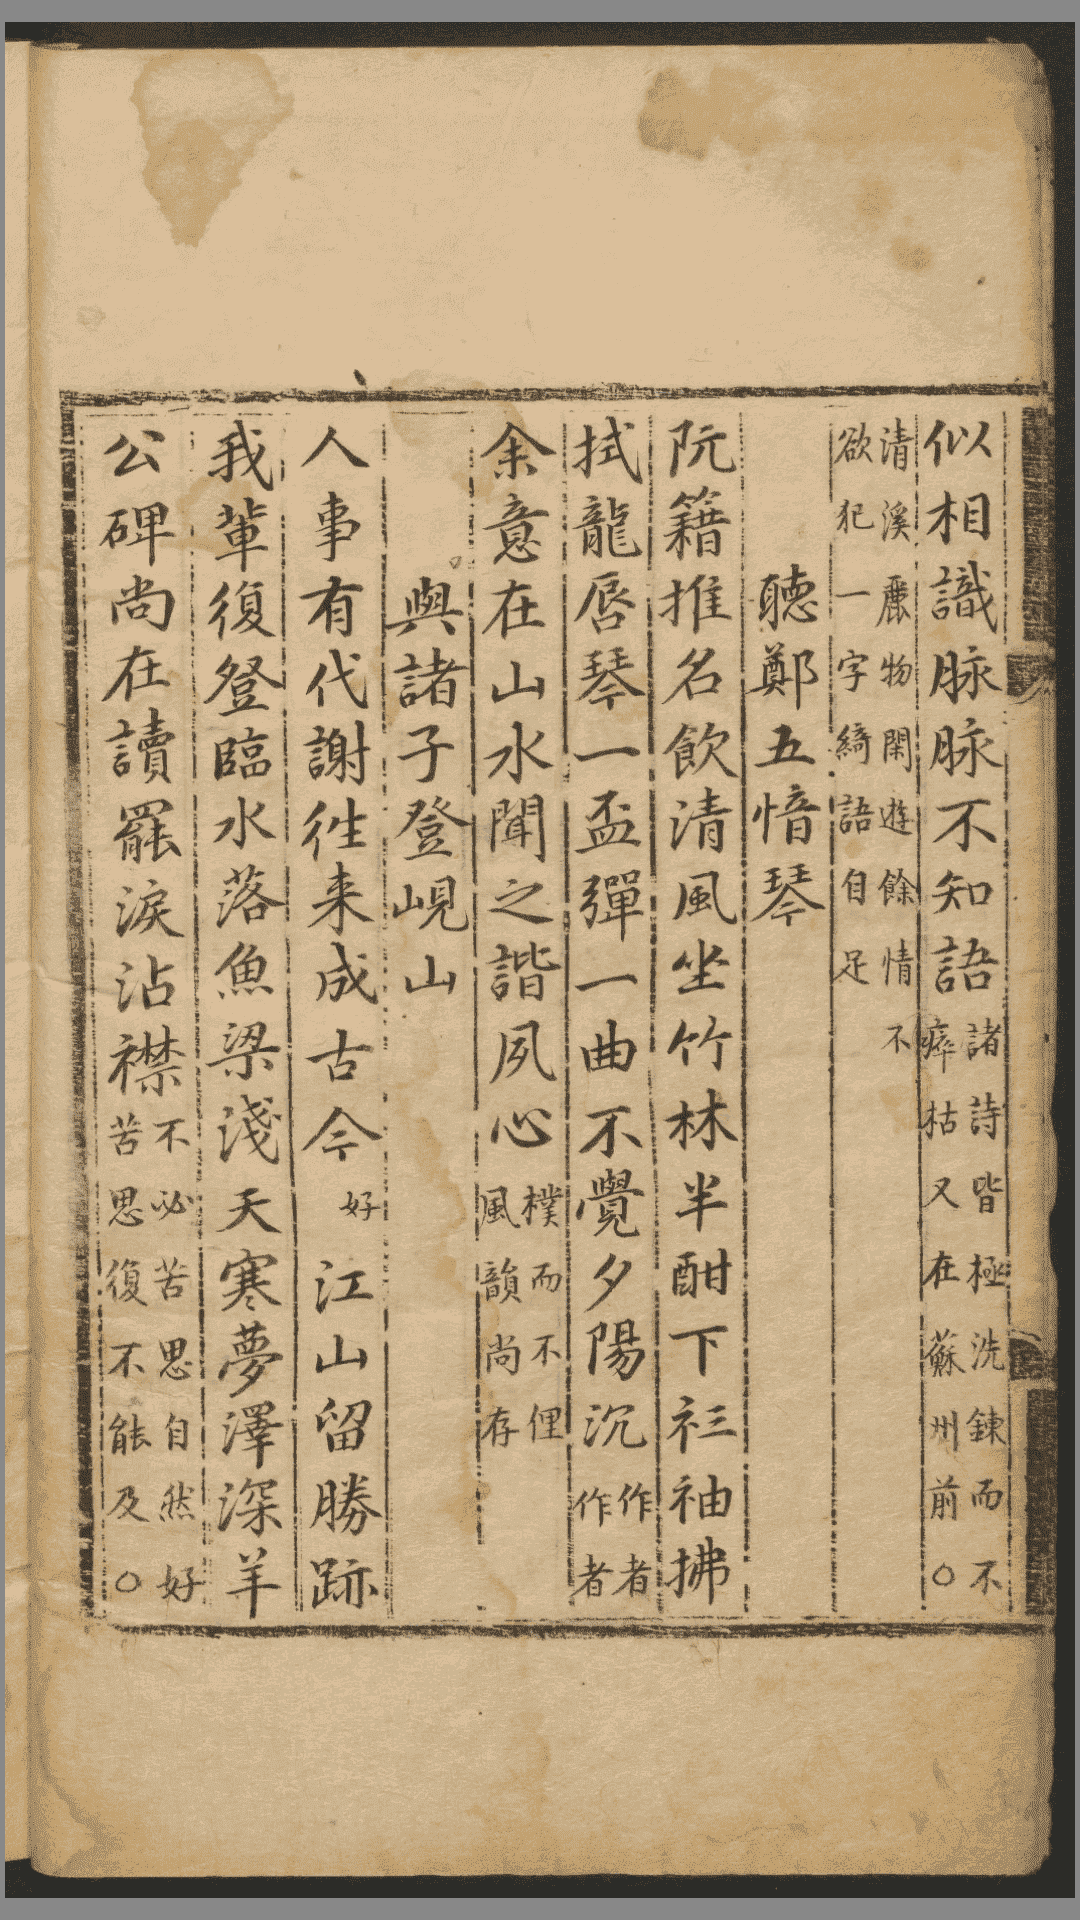 似相識脉脉不知語諸詩皆極洗鍊而不瘁枯又在蘇州前○
清溪麗物閑遊餘情不欲犯一字綺語自足
聽鄭五愔琴
阮籍推名飲清風坐竹林半酣下衫袖拂
拭龍唇琴一盃彈一曲不覺夕陽沉作者作者
余意在山水聞之諧夙心樸而不俚風韻尚存
與諸子登峴山
人事有代謝徃来成古今好江山留勝跡
我軰復登臨水落魚梁淺天寒夢澤深羊
公碑尚在讀罷淚沾襟不必苦思自然好苦思復不能及○